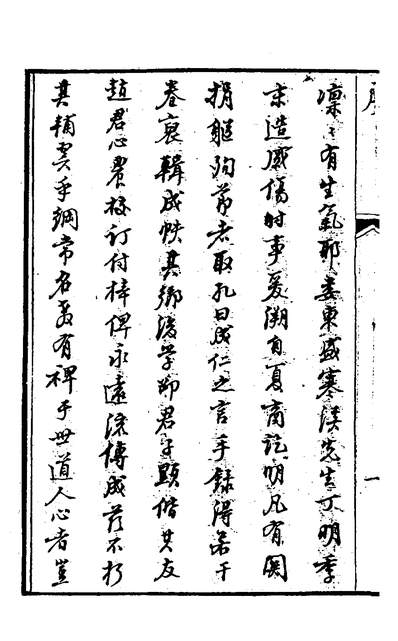 凜〻有生氣耶婁東盛寒溪先生丁明季
末造感傷時事爰溯自夏商訖明凡有閎
捐軀殉節者取孔曰成仁之言手錄得若干
卷裒輯成帙其鄉後學鄭君子顯偕其友
趙君心農校訂付梓俾永遠流傳成茲不朽
其輔翼乎綱常名教有裨于世道人心者豈
序
一